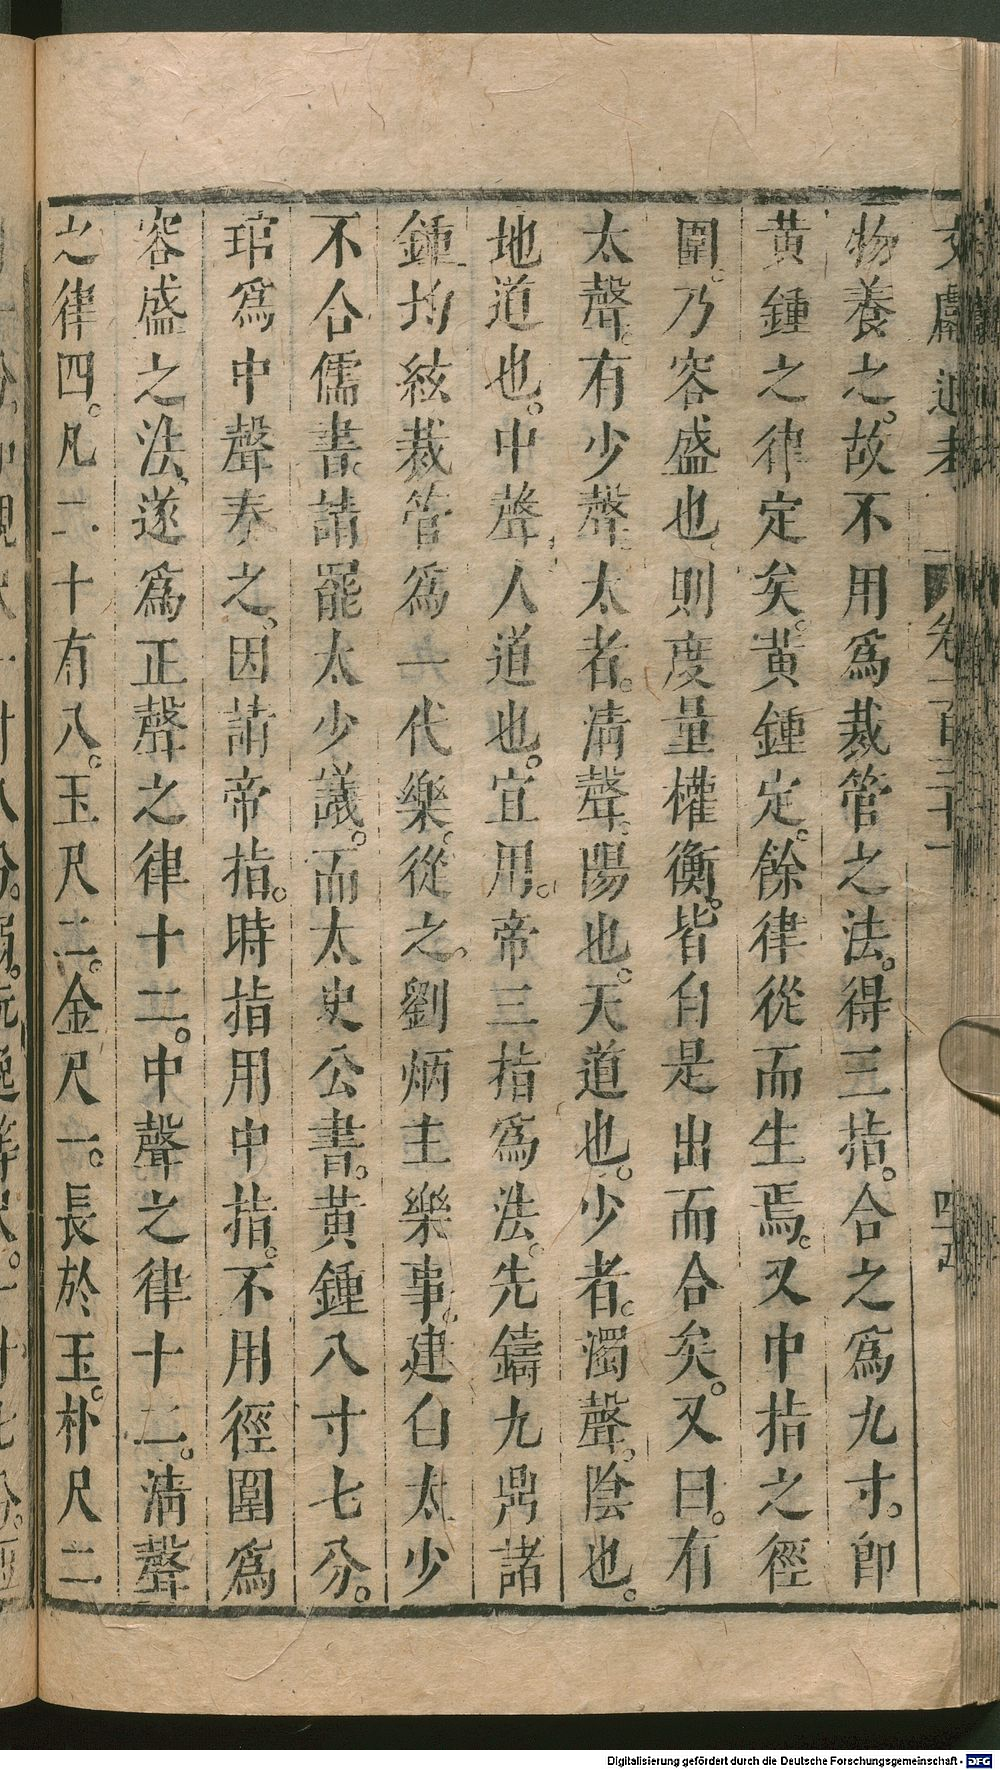 文獻通考　卷一百三十一　四五
物養之。故不用爲裁管之法。得三指。合之爲九寸。卽
黃鍾之律定矣。黃鍾定。餘律從而生焉。又中指之徑
圍。乃容盛也。則度量權衡。皆自是出而合矣。又曰。有
太聲。有少聲。太者。淸聲。陽也。天道也。少者。濁聲。陰也。
地道也。中聲。人道也。宜用。帝三指爲法。先鑄九鼎諸
鍾均絃裁管爲一代樂。從之。劉炳主樂事。建白太少
不合儒書請罷太少議。而太史公書。黃鍾八寸七分。
琯爲中聲奏之。因請帝指。時指用中指。不用徑圍爲
容盛之法。遂爲正聲之律十二。中聲之律十二。淸聲
之律四。凡二十有八。玉尺二。金尺一。長於玉。朴尺二
Digitalisierung gefördert durch die Deutsche Forschungsgemeinschaft - DFG